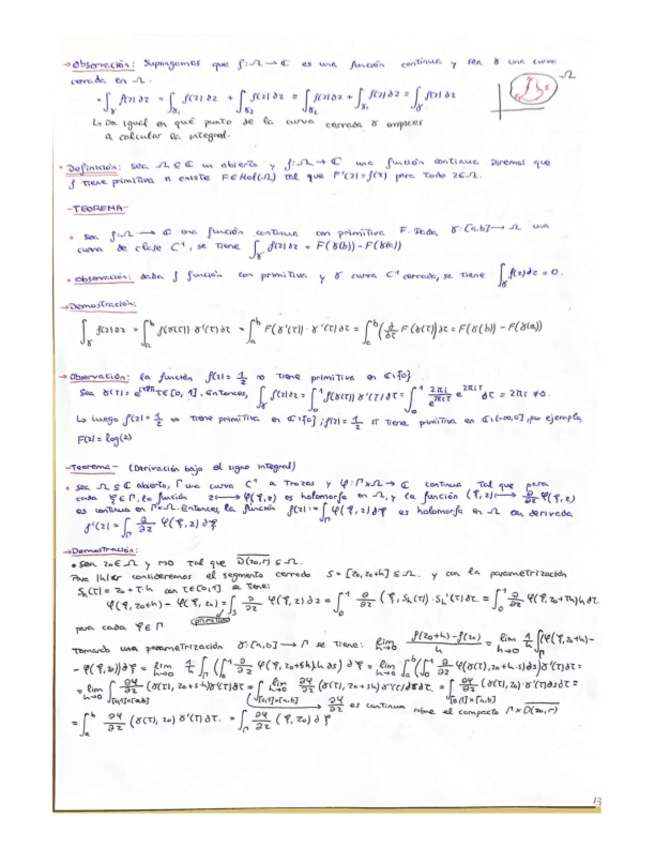 →Observación: Supongamos que f:Ω→ℂ es una función continua y sea γ una curva
cerrada en Ω.
Ω
•∫_γ f(z)dz = ∫_γ₁ f(z)dz + ∫_γ₂ f(z)dz = ∫_γ₂ f(z)dz + ∫_γ₁ f(z)dz = ∫_γ f(z)dz
↳ Da igual en qué punto de la curva cerrada γ empieces
a calcular la integral.
• Definición: sea Ω⊆ℂ un abierto y f:Ω→ℂ una función continua. Diremos que
f tiene primitiva si existe F∈Hol(Ω) tal que F'(z)=f(z) para todo z∈Ω.
-TEOREMA-
• Sea f:Ω→ℂ una función continua con primitiva F. Dada γ:[a,b]→Ω una
curva de clase C¹, se tiene ∫_γ f(z)dz = F(γ(b)) - F(γ(a))
• Observación: dada f función con primitiva y γ curva C¹ cerrada, se tiene ∫_γ f(z)dz = 0.
→Demostración:
∫_γ f(z)dz = ∫_a^b f(γ(t))·γ'(t)dt = ∫_a^b F(γ'(t))·γ'(t)dt = ∫_a^b (∂/∂t F(γ(t)))dt = F(γ(b)) - F(γ(a))
→Observación: la función f(z)=1/z no tiene primitiva en ℂ\{0}
Sea γ(t)=e^{i2πt} t∈[0,1]. Entonces, ∫_γ f(z)dz = ∫_0^1 f(γ(t))γ'(t)dt = ∫_0^1 2πi/e^{2πit} e^{2πit} dt = 2πi ≠ 0.
↳ luego f(z)=1/z no tiene primitiva en ℂ\{0}; f(z)=1/z sí tiene primitiva en ℂ\(-∞,0], por ejemplo,
F(z)=log(z)
-Teorema- (Derivación bajo el signo integral)
• Sea Ω⊆ℂ abierto, Γ una curva C¹ a trozos y φ:Γ×Ω→ℂ continua tal que para
cada ξ∈Γ, la función z↦φ(ξ,z) es holomorfa en Ω, y la función (ξ,z)↦∂/∂z φ(ξ,z)
es continua en Γ×Ω. Entonces, la función f(z):=∫_Γ φ(ξ,z)dξ es holomorfa en Ω con derivada
f'(z)=∫_Γ ∂/∂z φ(ξ,z)dξ
→Demostración:
• Sea z₀∈Ω y r>0 tal que D̅(z₀,r)⊆Ω.
Para |h|<r consideremos el segmento cerrado S=[z₀,z₀+h]⊆Ω. y con la parametrización
S_h(t)=z₀+t·h con t∈[0,1] se tiene:
φ(ξ,z₀+h) - φ(ξ,z₀) = ∫_S ∂/∂z φ(ξ,z)dz = ∫_0^1 ∂/∂z (ξ,S_h(t))·S_h'(t)dt = ∫_0^1 ∂/∂z φ(ξ,z₀+th)h dt
primitiva
para cada ξ∈Γ
Tomando una parametrización γ:[a,b]→Γ se tiene: lim_{h→0} f(z₀+h)-f(z₀)/h = lim_{h→0} 1/h ∫_Γ [(φ(ξ,z₀+h)-
-φ(ξ,z₀))dξ = lim_{h→0} 1/h ∫_Γ (∫_0^1 ∂/∂z φ(ξ,z₀+sh)h ds) dξ = lim_{h→0} ∫_a^b (∫_0^1 ∂/∂z φ(γ(t),z₀+h·s)ds)γ'(t)dt =
= lim_{h→0} ∫_{[0,1]×[a,b]} ∂φ/∂z (γ(t),z₀+s·h)γ'(t)dt = ∫_{[0,1]×[a,b]} lim_{h→0} ∂φ/∂z (γ(t),z₀+sh)γ'(t)dsdt. = ∫_{[0,1]×[a,b]} ∂φ/∂z (γ(t),z₀)·γ'(t)dsdt =
→ ∂φ/∂z es continua sobre el compacto Γ×D̅(z₀,r)
= ∫_a^b ∂φ/∂z (γ(t),z₀)γ'(t)dt. = ∫_Γ ∂φ/∂z (ξ,z₀)dξ
13